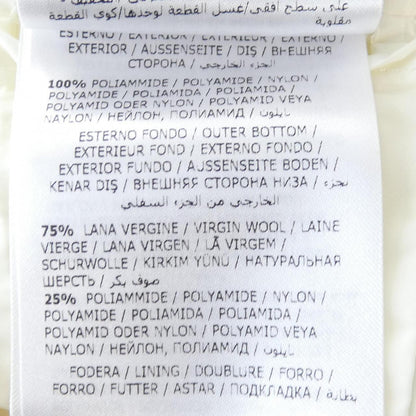 على سطح أفقي/غسل القطعة لوحدها/كوي القطعة
مقلوبة
ESTERNO / EXTERIOR / EXTERIEUR / EXTERNO /
EXTERIOR / AUSSENSEITE / DIŞ / ВНЕШНЯЯ
СТОРОНА / الجزء الخارجي
100% POLIAMMIDE / POLYAMIDE / NYLON /
POLYAMIDE / POLIAMIDA / POLIAMIDA /
POLYAMID ODER NYLON / POLYAMID VEYA
NAYLON / НЕЙЛОН, ПОЛИАМИД / نايلون
ESTERNO FONDO / OUTER BOTTOM /
EXTERIEUR FOND / EXTERNO FONDO /
EXTERIOR FUNDO / AUSSENSEITE BODEN /
KENAR DIŞ / ВНЕШНЯЯ СТОРОНА НИЗА / الجزء
الخارجي من الجزء السفلي
75% LANA VERGINE / VIRGIN WOOL / LAINE
VIERGE / LANA VIRGEN / LÃ VIRGEM /
SCHURWOLLE / KIRKIM YÜNÜ / НАТУРАЛЬНАЯ
ШЕРСТЬ / صوف بكر
25% POLIAMMIDE / POLYAMIDE / NYLON /
POLYAMIDE / POLIAMIDA / POLIAMIDA /
POLYAMID ODER NYLON / POLYAMID VEYA
NAYLON / НЕЙЛОН, ПОЛИАМИД / نايلون
FODERA / LINING / DOUBLURE / FORRO /
FORRO / FUTTER / ASTAR / ПОДКЛАДКА / بطانة